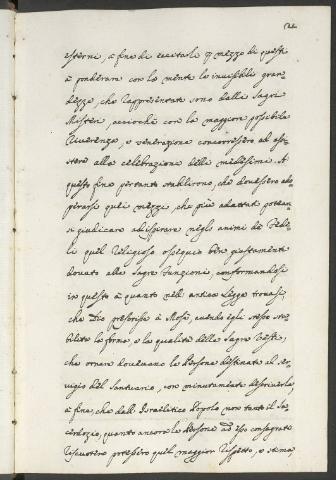 esterni, a fine di eccitarli p mezzo di questi
à ponderare con la mente le invisibili gran
dezze, che rappresentate sono dalli Sagri
Misterj, acciochè con la maggior possibile
riverenza, e venerazione concorressero ad assi
stere alla celebrazione delli medesimi. A
questo fine pertanto stabilirono, che dovessero ado
perarsi quei mezzi, che più adattati potean
si giudicare ad ispirare negli animi de Fede
li quel religioso ossequio ben giustamente
dovuto alle Sagre Funzioni, conformandosi
in questo à quanto nell antica Legge trovasi,
che Dio prescrisse à Mosè, avendo egli stesso sta
bilito la forma, e la qualità delle Sagre Vesti,
che ornare dovevano le Persone destinate al ser
vigio del Santuario, con minutamente descriverle
à fine, che dall Israelitico Popolo, non tanto il Sa
cerdozio, quanto ancora le Persone ad esso consagrate
riscuotere potessero quel maggior rispetto, e stima,